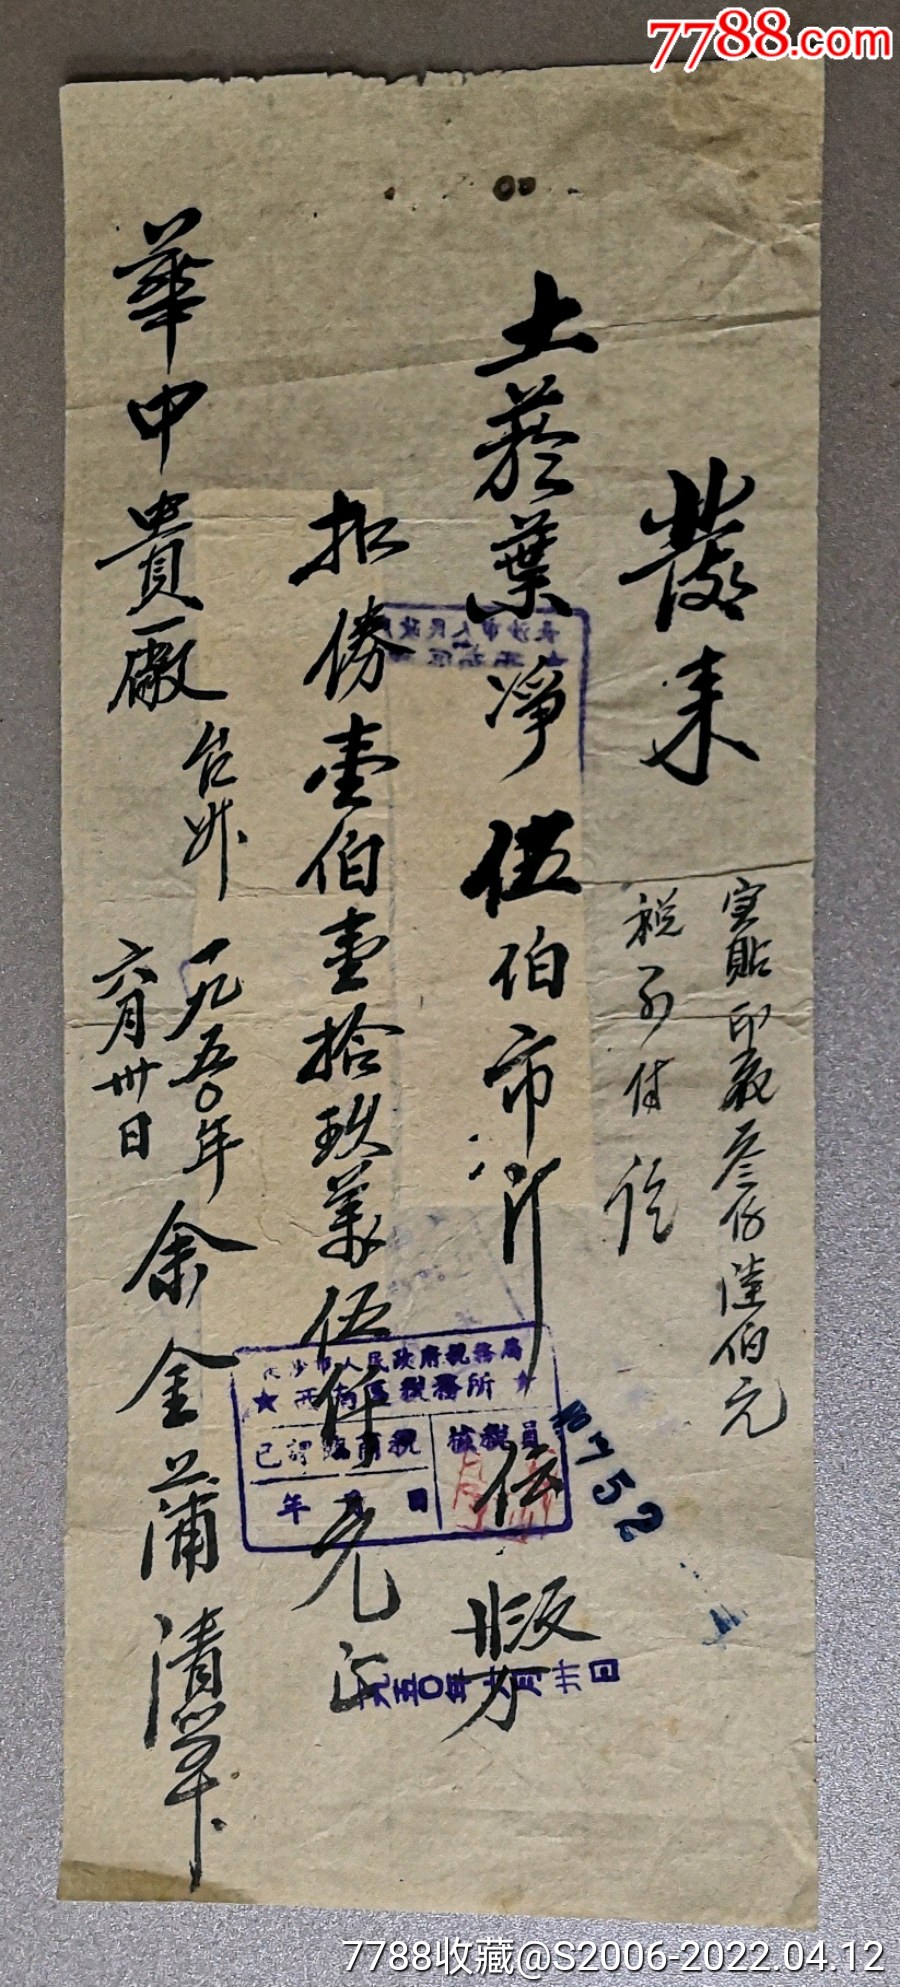 7788.com
發來
實貼印花叁仟陸伯元
稅另付訖
土菸葉淨伍伯市斤
扣傍壹伯壹拾玖萬伍仟元正
華中貴廠台升
一九五〇年
六月卅日
余金蒲清單
長沙市人民政府稅務局
★西南區稅務所★
核稅員
已課臨商稅
年 月 日
752
一九五〇年六月卅日
7788收藏@S2006-2022.04.12